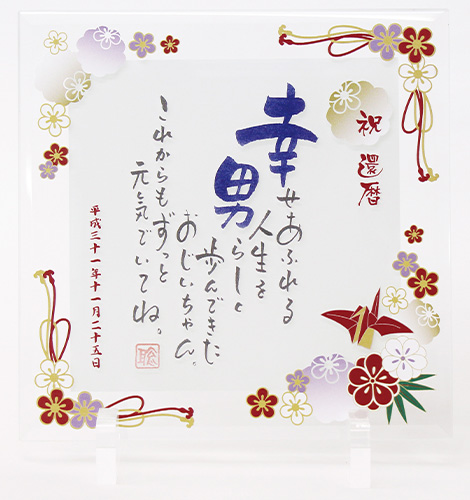 祝 還暦
幸せあふれる
人生を
男らしく
歩んできた
おじいちゃん。
これからもずっと
元気でいてね。
平成三十一年十一月二十五日